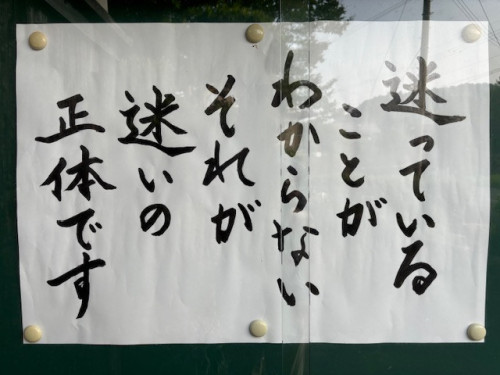 迷っている
ことが
わからない
それが
迷いの
正体です